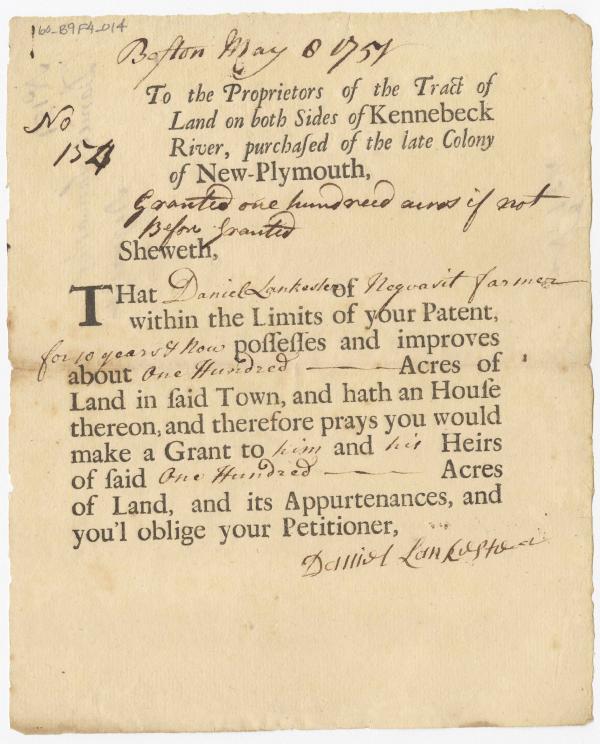 160-B9F4-014
Boston May 8 1751
To the Proprietors of the Tract of
No
Land on both Sides of Kennebeck
154
River, purchaſed of the late Colony
of New-Plymouth,
Granted one hundreed acres if not
Before Granted
Sheweth,
THat Daniel Lankester of Neqvasit farmer
within the Limits of your Patent,
for 10 years & Now poſſeſſes and improves
about One Hundred Acres of
Land in ſaid Town, and hath an Houſe
thereon, and therefore prays you would
make a Grant to him and his Heirs
of ſaid One Hundred Acres
of Land, and its Appurtenances, and
you'l oblige your Petitioner,
Daniel Lankester